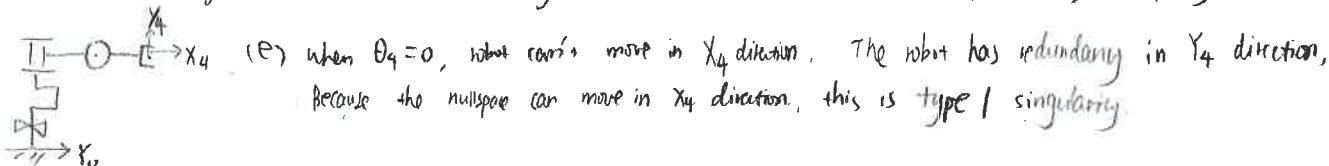 Y4
X4 (e) when θ4=0, robot can't move in X4 direction. The robot has redundancy in Y4 direction,
Because the nullspace can move in X4 direction, this is type 1 singularity.